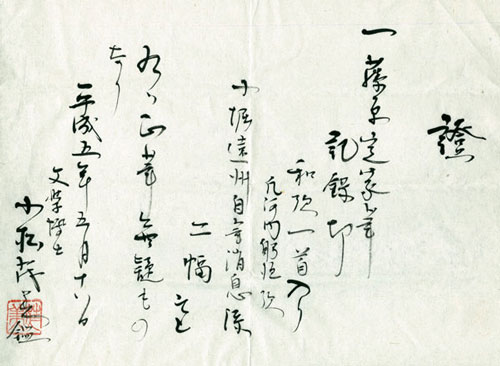 證
一 藤原定家筆
記録切
和歌一首入り
凡河内躬恒歌
小堀遠州自筆消息添
二幅
右ハ正筆無疑もの
なり
平成五年五月十八日
文学博士
小松茂美鑑